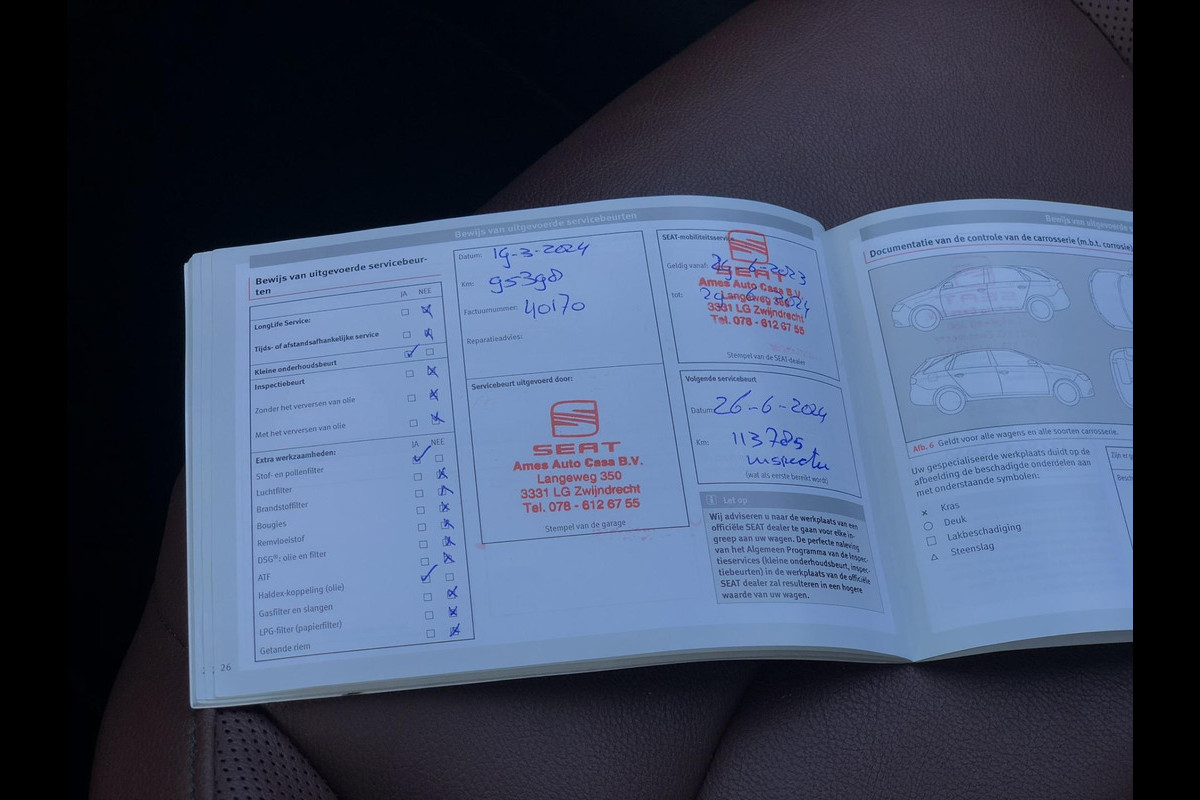 Bewijs van uitgevoerde servicebeurten
Bewijs van uitgevoerde servicebeur-
ten
JA NEE
LongLife Service:
Tijds- of afstandsafhankelijke service
Kleine onderhoudsbeurt
Inspectiebeurt
Zonder het verversen van olie
Met het verversen van olie
JA NEE
Extra werkzaamheden:
Stof- en pollenfilter
Luchtfilter
Brandstoffilter
Bougies
Remvloeistof
DSG®: olie en filter
ATF
Haldex-koppeling (olie)
Gasfilter en slangen
LPG-filter (papierfilter)
Getande riem
26
Datum: 19-3-2024
Km: 95398
Factuurnummer: 40170
Reparatieadvies:
Servicebeurt uitgevoerd door:
SEAT
Ames Auto Casa B.V.
Langeweg 350
3331 LG Zwijndrecht
Tel. 078 - 612 67 55
Stempel van de garage
SEAT-mobiliteitsservice
Geldig vanaf: 6-2023
tot:
SEAT
Ames Auto Casa B.V.
Langeweg 350
3331 LG Zwijndrecht
Tel. 078 - 612 67 55
Stempel van de SEAT-dealer
Volgende servicebeurt
Datum: 26-6-2024
Km: 113785
inspectie
(wat als eerste bereikt wordt)
Let op
Wij adviseren u naar de werkplaats van een
officiële SEAT dealer te gaan voor elke in-
greep aan uw wagen. De perfecte naleving
van het Algemeen Programma van de Inspec-
tieservices (kleine onderhoudsbeurt, inspec-
tiebeurten) in de werkplaats van de officiële
SEAT dealer zal resulteren in een hogere
waarde van uw wagen.
Bewijs van uitgevoerde
Documentatie van de controle van de carrosserie (m.b.t. corrosie)
Afb. 6 Geldt voor alle wagens en alle soorten carrosserie.
Uw gespecialiseerde werkplaats duidt op de
afbeelding de beschadigde onderdelen aan
met onderstaande symbolen:
Kras
Deuk
Lakbeschadiging
Steenslag